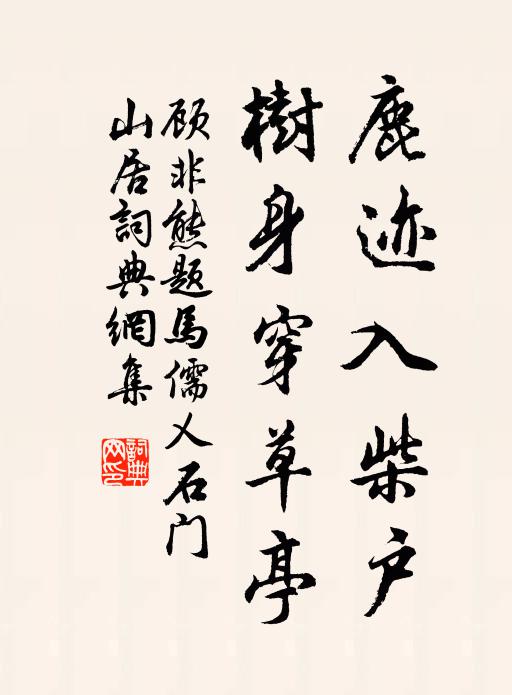 鹿迹入柴户
樹身穿草亭
顾非熊题馬儒乂石门
山居詞典網集
詞典网印